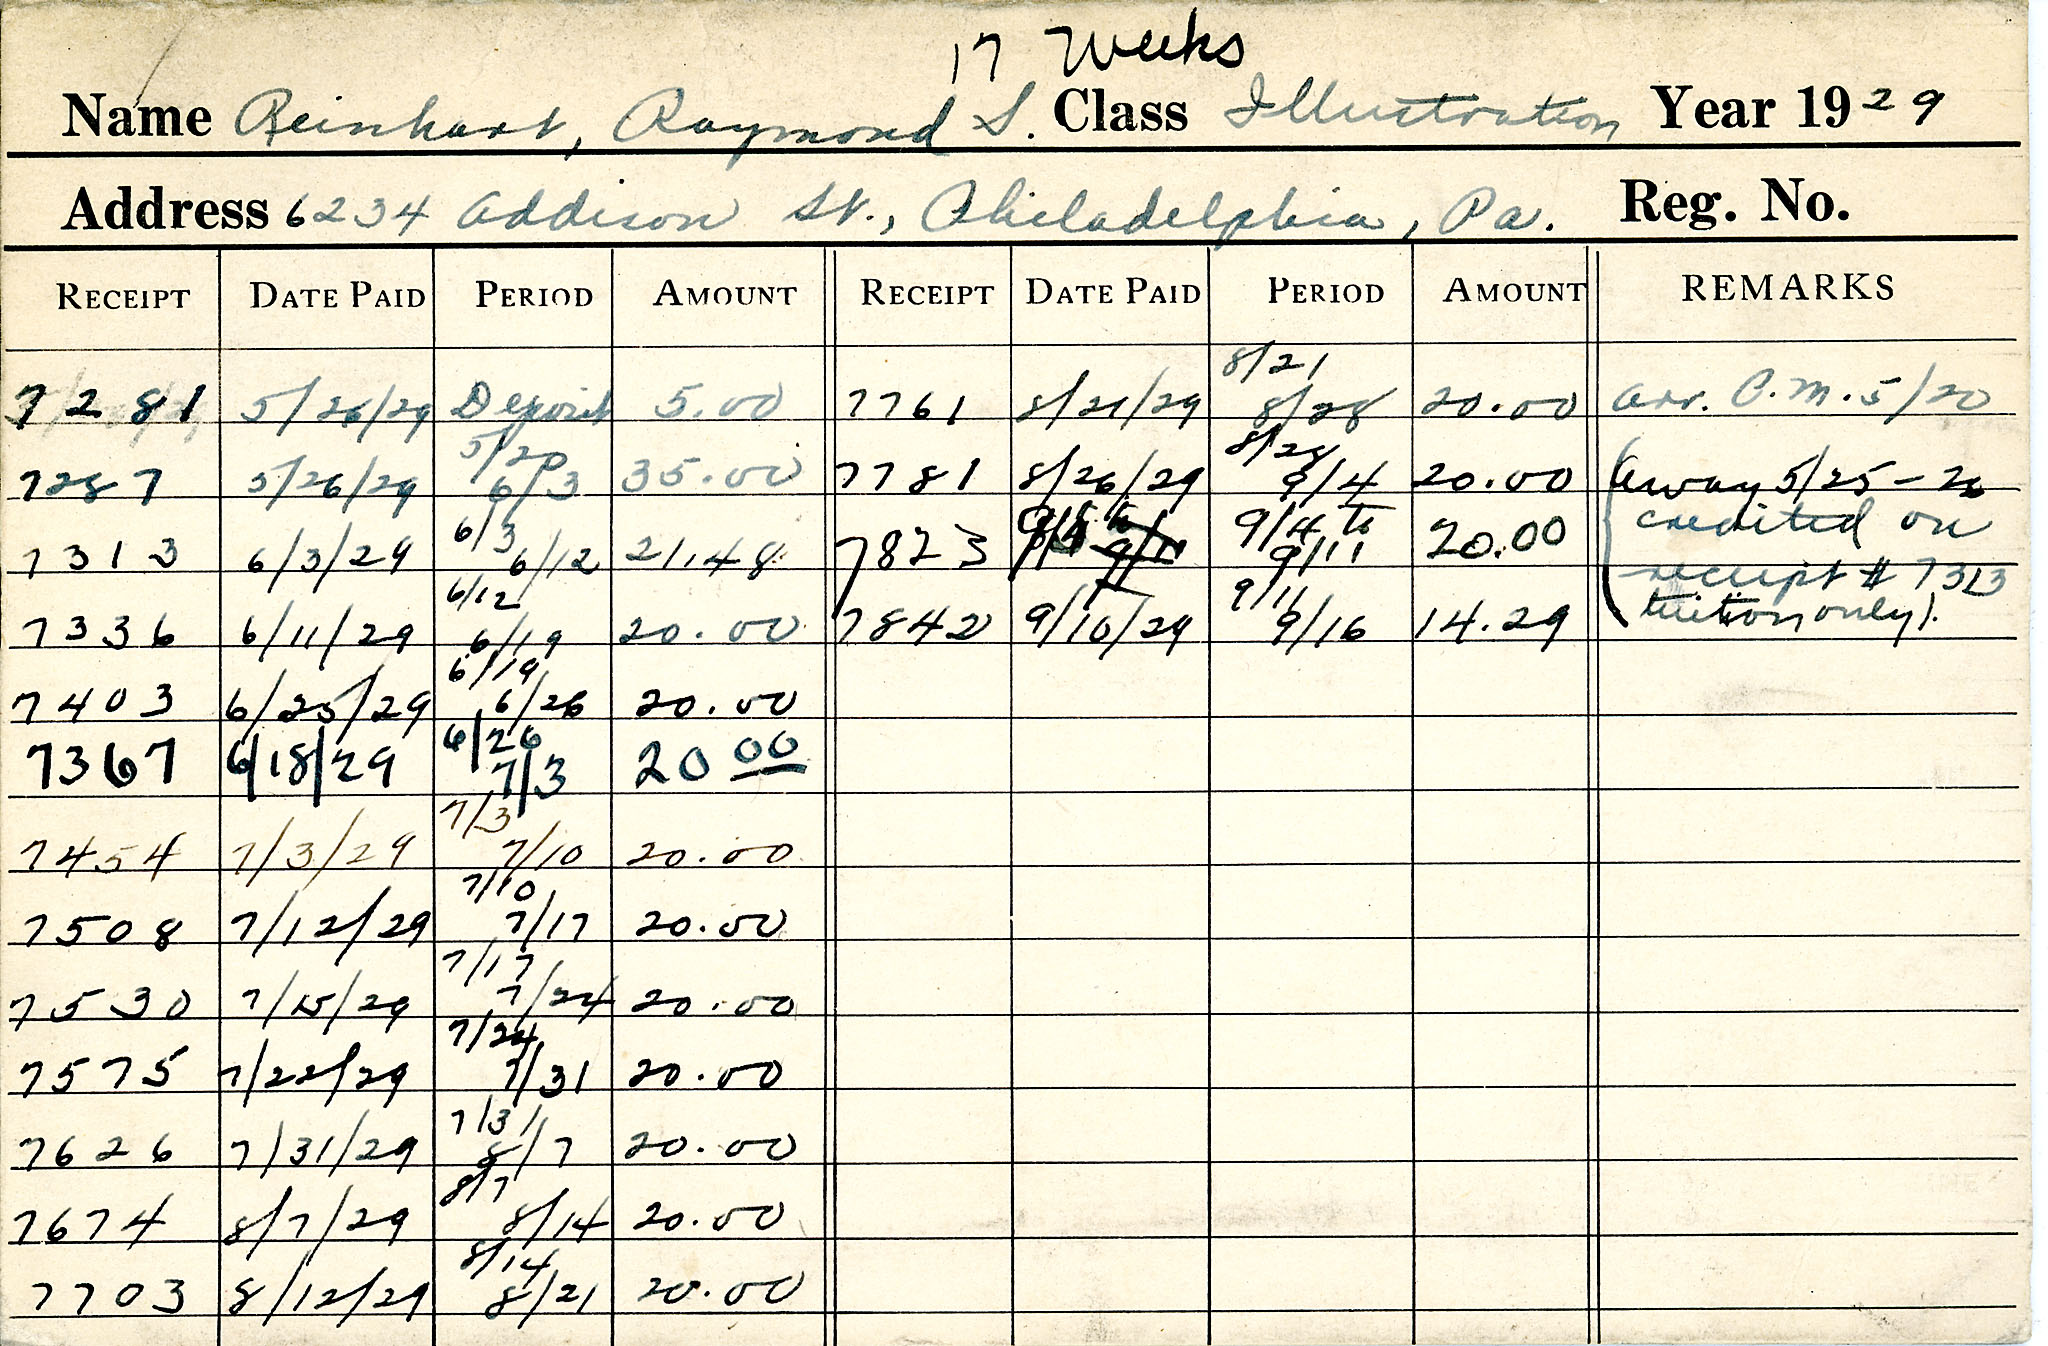 17 Weeks
Name Reinhart, Raymond S. Class Illustration Year 1929
Address 6234 Addison St., Philadelphia, Pa. Reg. No.
RECEIPT DATE PAID PERIOD AMOUNT RECEIPT DATE PAID PERIOD AMOUNT REMARKS
7281 5/26/29 Deposit 5.00 7761 8/21/29 8/21 8/28 20.00 arr. P.M. 5/20
7287 5/26/29 5/20 6/3 35.00 7781 8/26/29 8/28 9/4 20.00 (away 5/25-26
7313 6/3/29 6/3 6/12 21.48 7823 9/4 to 9/11 20.00 credited on
receipt # 7313
7336 6/11/29 6/12 6/19 20.00 7842 9/10/29 9/11 9/16 14.29 tuition only).
7403 6/25/29 6/19 6/26 20.00
7367 6/18/29 6/26 7/3 20 00
7454 7/3/29 7/3 7/10 20.00
7508 7/12/29 7/10 7/17 20.00
7530 7/15/29 7/17 7/24 20.00
7575 7/22/29 7/24 7/31 20.00
7626 7/31/29 7/31 8/7 20.00
7674 8/7/29 8/7 8/14 20.00
7703 8/12/29 8/14 8/21 20.00